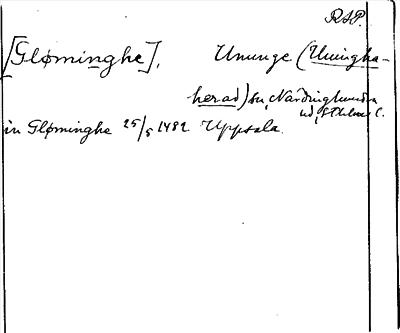 RAP.
[Gløminghe], Ununge (Uningha-
herad) sn Närdinghundra
hd, Sthlms l.
in Gløminghe 25/5 1482 Uppsala.